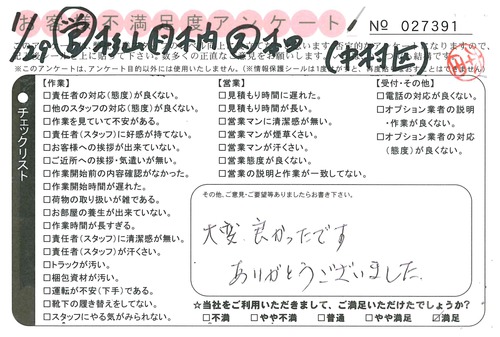 お客様不満足度アンケート
No 027391
1/29
(中村区)
※このアンケートは、アンケート目的以外には使用いたしません。(※情報保護シールは1度
チェックリスト
【作業】
□責任者の対応(態度)が良くない。
□他のスタッフの対応(態度)が良くない。
□作業を見ていて不安がある。
□責任者(スタッフ)に好感が持てない。
□お客様への挨拶が出来ていない。
□ご近所への挨拶・気遣いが無い。
□作業開始前の内容確認がなかった。
□作業開始時間が遅れた。
□荷物の取り扱いが雑である。
□お部屋の養生が出来ていない。
□作業時間が長すぎる。
□責任者(スタッフ)に清潔感が無い。
□責任者(スタッフ)が汗くさい。
□トラックが汚い。
□梱包資材が汚い。
□運転が不安(下手)である。
□靴下の履き替えをしてない。
□スタッフにやる気がみられない。
【営業】
□見積もり時間に遅れた。
□見積もり時間が長い。
□営業マンに清潔感が無い。
□営業マンが煙草くさい。
□営業マンが汗くさい。
□営業態度が良くない。
□営業の説明と作業が一致してない。
【受付・その他】
□電話の対応が良くない。
□オプション業者の説明
・作業が良くない。
□オプション業者の対応
(態度)が良くない。
その他、ご意見・ご要望等ありましたらお書き下さい。
大変 良かったです
ありがとうございました。
☆当社をご利用いただきまして、ご満足いただけたでしょうか?
□不満 □やや不満 □普通 □やや満足 ☑満足